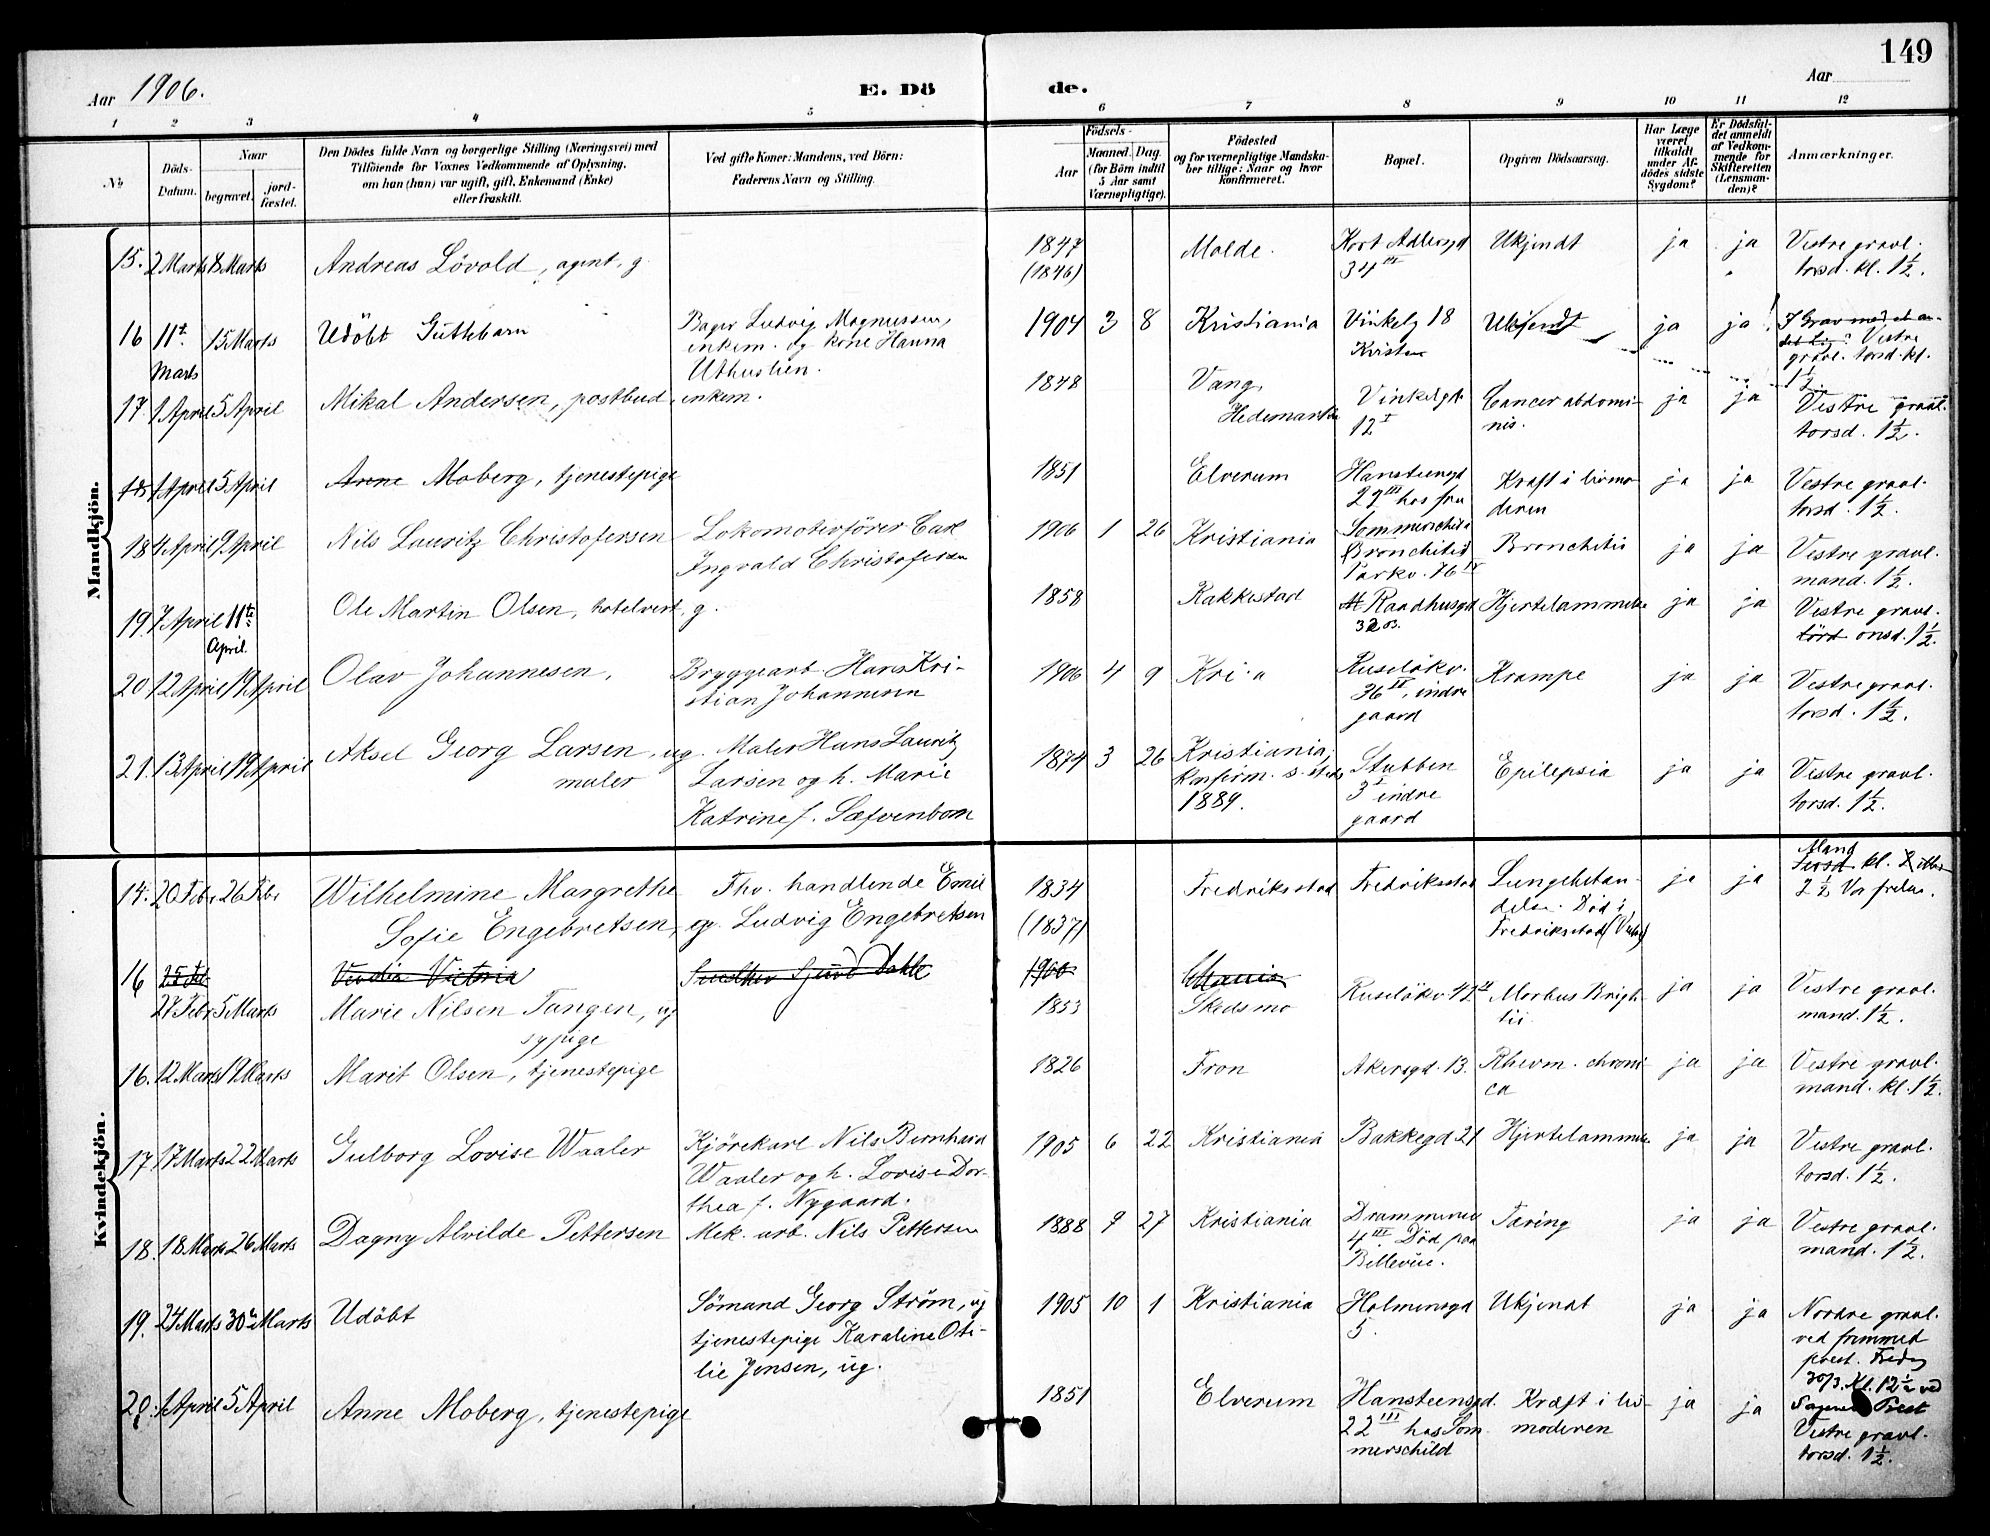 149
Aar 1906. E. Dö de. Aar
1 2 3 4 5 6 7 8 9 10 11 12
No
Döds-Datum.
Naar
begravet.
jord-fæstet.
Den Dödes fulde Navn og borgerlige Stilling (Næringsvei) med
Tilföiende for Voxnes Vedkommende af Oplysning,
om han (hun) var ugift, gift, Enkemand (Enke)
eller fraskilt.
Ved gifte Koner: Mandens, ved Börn:
Faderens Navn og Stilling.
Födsels-
Aar
Maaned. Dag.
(for Börn indtil
5 Aar samt
Værnepligtige).
Födested
og for værnepligtige Mandska-
ber tillige: Naar og hvor
konfirmeret.
Bopæl.
Opgiven Dödsaarsag.
Har Læge
været
tilkaldt
under Af-
dödes sidste
Sygdom?
Er Dödsfal-
det anmeldt
af Vedkom-
mende for
Skifteretten
(Lensman-
den)?
Anmærkninger.
Mandkjön.
15. 2 Marts 8 Marts Andreas Lövold, agent, g. 1847 Molde. Kort Adlersgd Ukjendt ja ja Vestre gravl.
(1846) 34 III torsd. kl. 1½.
16 11te 15 Marts Udöbt Guttebarn Bager Ludvig Magnussen, 1904 3 8 Kristiania Vinkelg 18 Ukjendt ja ja! I Grav med et an-
Marts enkem. og kone Hanna Vestre
gravl. torsd. kl.
1½.
17 1 April 5 April Mikal Andersen, postbud, enkem. 1848 Vang, Vinkelgt Cancer abdomi- ja ja Vestre gravl.
Hedemarken 12 I nis. torsd. 1½.
18 1 April 5 April Anne Moberg, tjenestepige 1851 Elverum Hansteensgd Kræft i livmo- ja ja Vestre gravl.
22 III hos fru deren torsd. 1½.
Sommerschild
18 4 April 9 April Nils Lauritz Christofersen Lokomotivfører Carl 1906 1 26 Kristiania Bronchitis ja ja Vestre gravl.
Ingvald Christofersen Parkv. 76 IV mand. 1½.
19. 7 April 11te Ole Martin Olsen, hotelvert, g. 1858 Rakkestad Raadhusgd Hjertelammelse ja ja Vestre gravl.
April. onsd. 1½.
20 12 April 19 April Olav Johannesen, Bryggearb. Hans Kri- 1906 4 9 Kri.a Ruselökv. Krampe ja ja Vestre gravl.
stian Johannesen 36 II, indre torsd. 1½.
gaard
21. 13 April 19 April Aksel Georg Larsen, ug. Maler Hans Lauritz 1874 3 26 Kristiania, Stubben Epilepsia ja ja Vestre gravl.
maler Larsen og h. Marie konfirm. s. steds 3 I indre torsd. 1½.
Katrine f. Sæfvenbom 1889. gaard
Kvindekjön.
14. 20 Febr. 26 Febr Wilhelmine Margrethe Fhv. handlende Emil 1834 Fredriksstad Fredriksstad Lungebetæn- ja ja
Sofie Engebretsen, eg. Ludvig Engebretsen (1837) delse. Död i
Fredriksstad
16 25 Feb 1900
27 Febr 5 Marts Marie Nilsen Tangen, ug 1853 Skedsmo Ruselökv 42 II Morbus Brigh- ja ja Vestre gravl.
sypige tii. mand. 1½.
16. 12 Marts 19 Marts Marit Olsen, tjenestepige 1826 Fron Akersgd. 13. Rheum. chroni- ja ja Vestre gravl.
ca mand. kl. 1½.
17. 17 Marts 22 Marts Gulborg Lovise Waaler Kjörekarl Nils Bernhard 1905 6 22 Kristiania Bakkegd 21 Hjertelammelse ja ja Vestre gravl.
Waaler og h. Lovise Dor- torsd. 1½.
thea f. Nygaard.
18. 18 Marts 26 Marts Dagny Alvilde Pettersen Mek. arb. Nils Pettersen 1888 9 27 Kristiania Drammensv Tæring ja ja Vestre gravl.
4 III Död paa mand. 1½.
Bellevue.
19. 24 Marts 30te Marts Udöbt Sömand Georg Ström, ug 1905 10 1 Kristiania Holmensgd Ukjendt ja ja Nordre gravl.
tjenestepige Karaline Oti- 5. ved fremmed
lie Jensen, ug. prest. Fredag
30/3. Kl. 12½ ved
Prest
20. 1 April 5 April Anne Moberg, tjenestepige 1851 Elverum Hansteensgd. Kræft i liv- ja ja Vestre gravl.
22 III hos Som- moderen torsd. 1½.
merschild